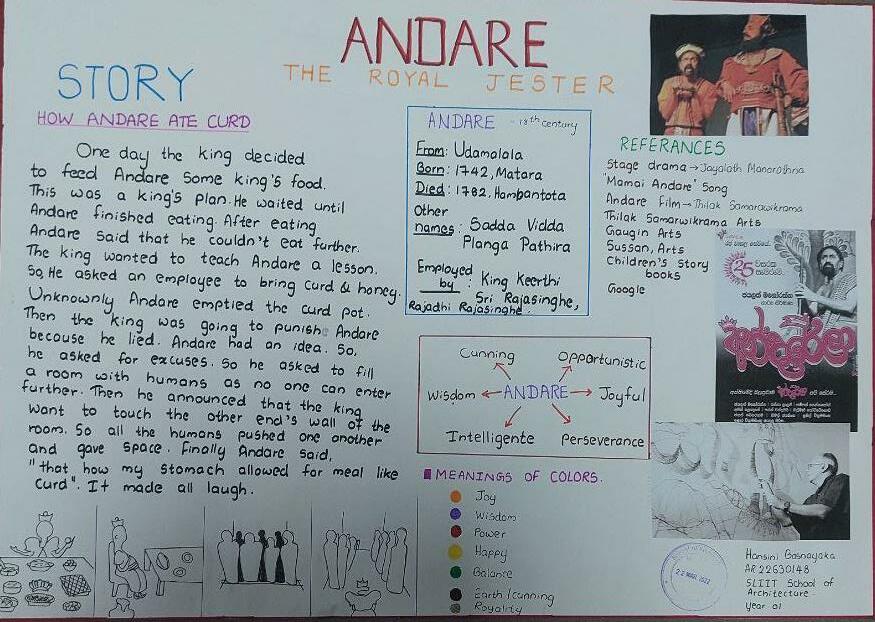 ANDARE
THE ROYAL JESTER
STORY
HOW ANDARE ATE CURD
One day the king decided
to feed Andare some king's food.
This was a king's plan. He waited until
Andare finished eating. After eating
Andare said that he couldn't eat further.
The king wanted to teach Andare a lesson.
So, He asked an employee to bring curd & honey.
Unknownly Andare emptied the curd pot.
Then the king was going to punish Andare
because he lied. Andare had an idea. So,
he asked for excuses. So he asked to fill
a room with humans as no one can enter
further. Then he announced that the king
want to touch the other end's wall of the
room. So all the humans pushed one another
and gave space. Finally Andare said,
"that how my stomach allowed for meal like
curd". It made all laugh.
ANDARE - 18th century
From: Udamalala
Born: 1742, Matara
Died: 1782, Hambantota
Other
names: Sadda Vidda
Planga Pathira
Employed
by: King Keerthi
Sri Rajasinghe,
Rajadhi Rajasinghe.
Cunning
Opportunistic
Wisdom ← ANDARE → Joyful
Intelligente
Perseverance
MEANINGS OF COLORS.
Joy
Wisdom
Power
Happy
Balance
Earth/cunning
Royality
REFERANCES
Stage drama → Jayalath Manorathna
"Mamai Andare" Song
Andare film → Thilak Samarawikrama
Thilak Samarwikrama Arts
Gaugin Arts
Sussan, Arts
Children's Story
books
Google
25
වසරක
ජයලත් මනෝරත්න
අන්දරේලා
22 MAR 2022
Hansini Basnayaka
AR22630148
SLIIT School of
Architecture
Year 01